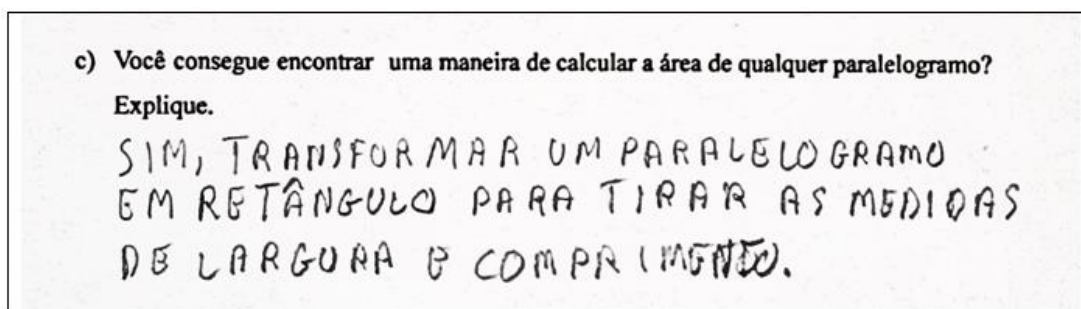 c) Você consegue encontrar uma maneira de calcular a área de qualquer paralelogramo?
Explique.
SIM, TRANSFORMAR UM PARALELOGRAMO
EM RETÂNGULO PARA TIRAR AS MEDIDAS
DE LARGURA E COMPRIMENTO.